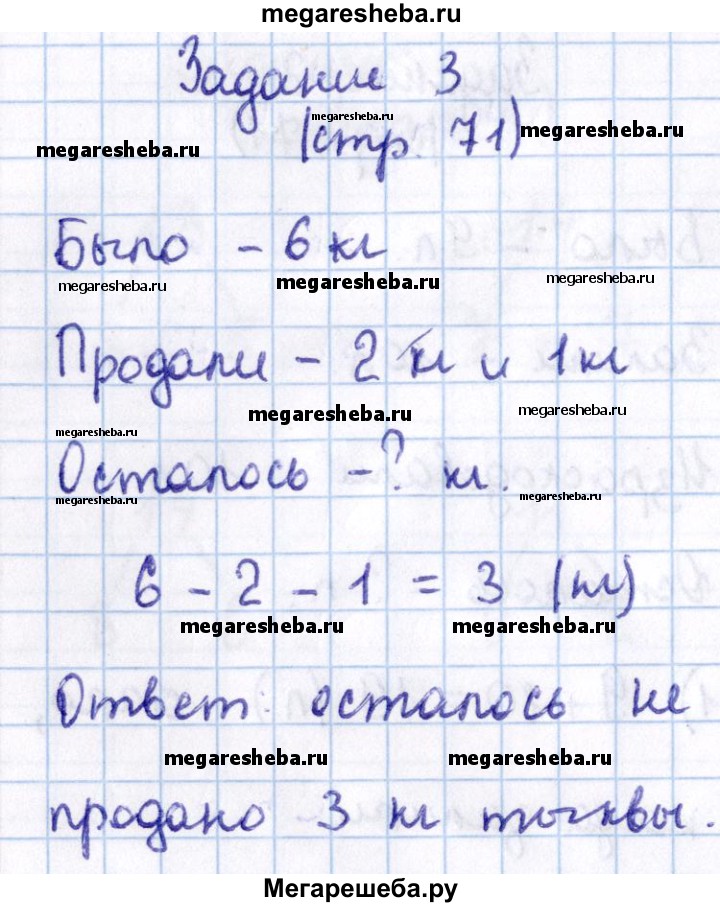 megaresheba.ru
Задание 3
megaresheba.ru
(стр. 71)
megaresheba.ru
megaresheba.ru
Было - 6 кг
megaresheba.ru
megaresheba.ru
megaresheba.ru
Продали - 2 кг и 1 кг
megaresheba.ru
megaresheba.ru
megaresheba.ru
Осталось - ? кг.
megaresheba.ru
megaresheba.ru
6 - 2 - 1 = 3 (кг)
megaresheba.ru
megaresheba.ru
Ответ: осталось не
megaresheba.ru
megaresheba.ru
продано 3 кг тыквы.
Мегарешеба.ру